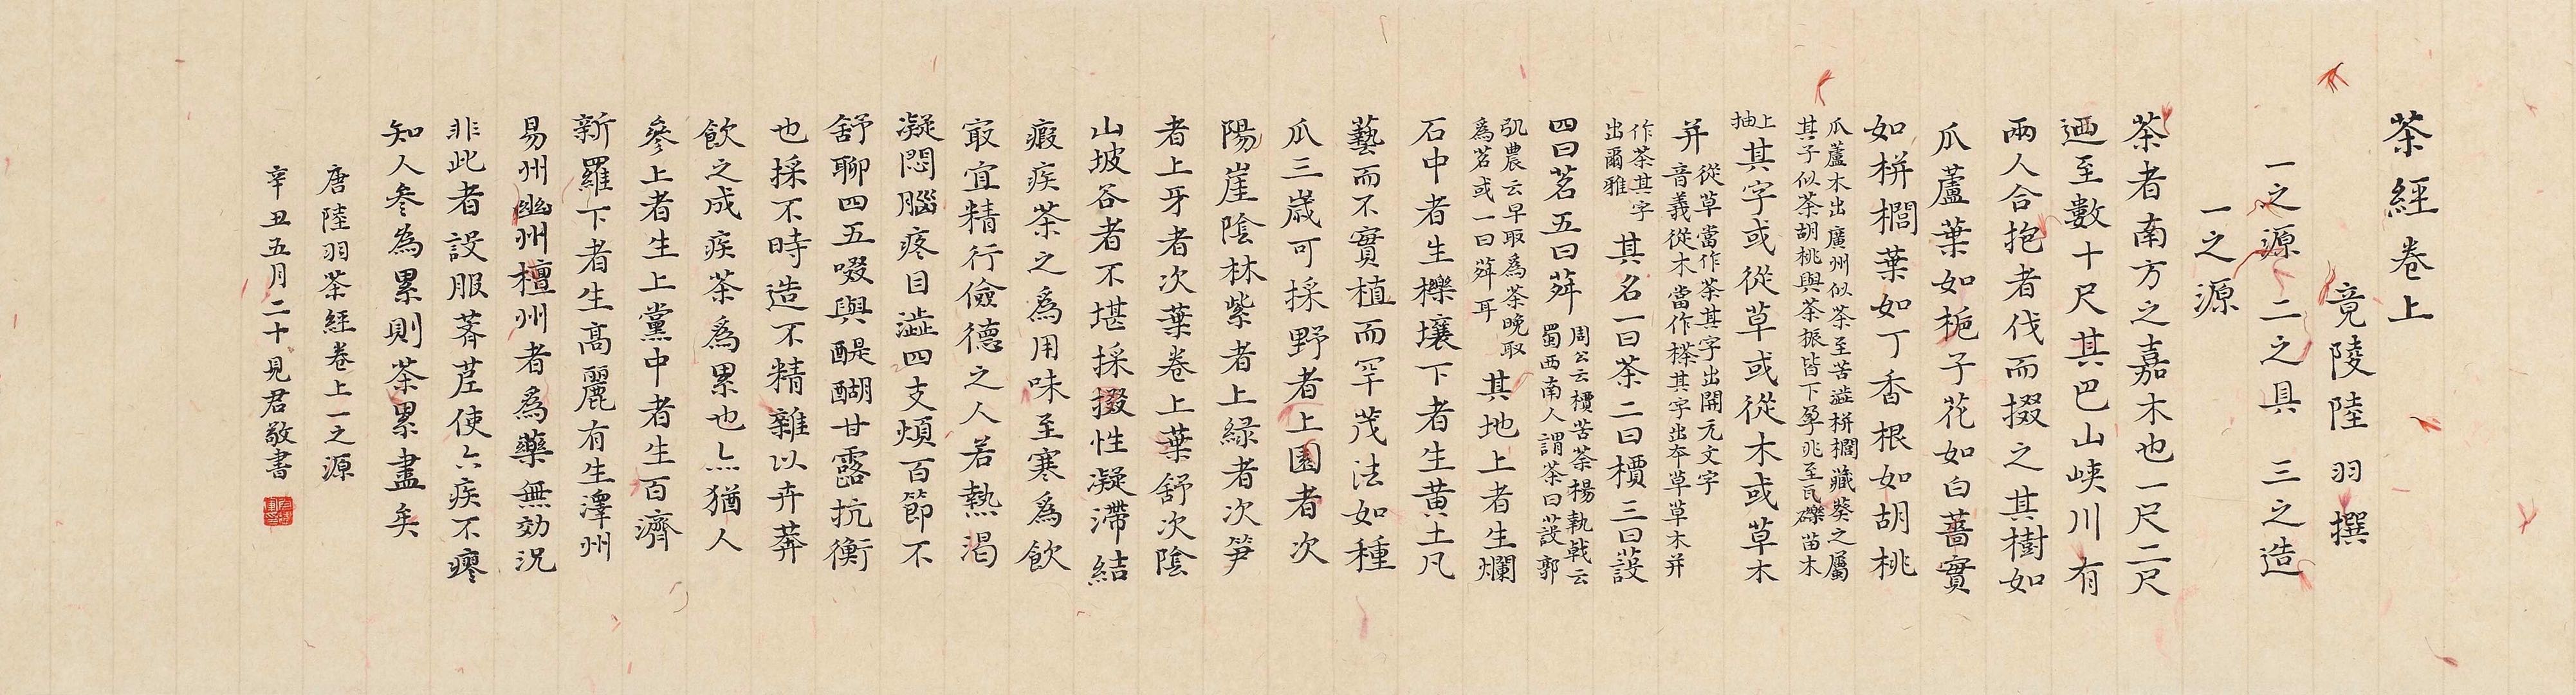 茶經卷上
竟陵陸羽撰
一之源 二之具 三之造
一之源
茶者南方之嘉木也一尺二尺
迺至數十尺其巴山峽川有
兩人合抱者伐而掇之其樹如
瓜蘆葉如梔子花如白薔薇實
如栟櫚葉如丁香根如胡桃
瓜蘆木出廣州似茶至苦澁栟櫚藏葵之屬
其子似茶胡桃與茶根皆下孕兆至瓦礫苗木
上抽
其字或從草或從木或草木
并
從草當作茶其字出開元文字
音義從木當作搽其字出夲草草木并
作荼其字
出爾雅
其名一曰茶二曰檟三曰蔎
四曰茗五曰荈
周公云檟苦荼楊執戟云
蜀西南人謂茶曰蔎郭
弘農云早取為茶晚取
為茗或一曰荈耳
其地上者生爛
石中者生櫟壤下者生黃土凡
藝而不實植而罕茂法如種
瓜三歲可採野者上園者次
陽崖陰林紫者上綠者次笋
者上牙者次葉卷上葉舒次陰
山坡谷者不堪採掇性凝滯結
瘕疾茶之為用味至寒為飲
㝡宜精行儉德之人若熱渴
凝悶腦疼目澁四支煩百節不
舒聊四五啜與醍醐甘露抗衡
也採不時造不精雜以卉莽
飲之成疾茶為累也亦猶人
參上者生上黨中者生百濟
新羅下者生高麗有生澤州
易州幽州檀州者為藥無効況
非此者設服薺苨使六疾不瘳
知人參為累則茶累盡矣
唐陸羽茶經卷上一之源
辛丑五月二十見君敬書